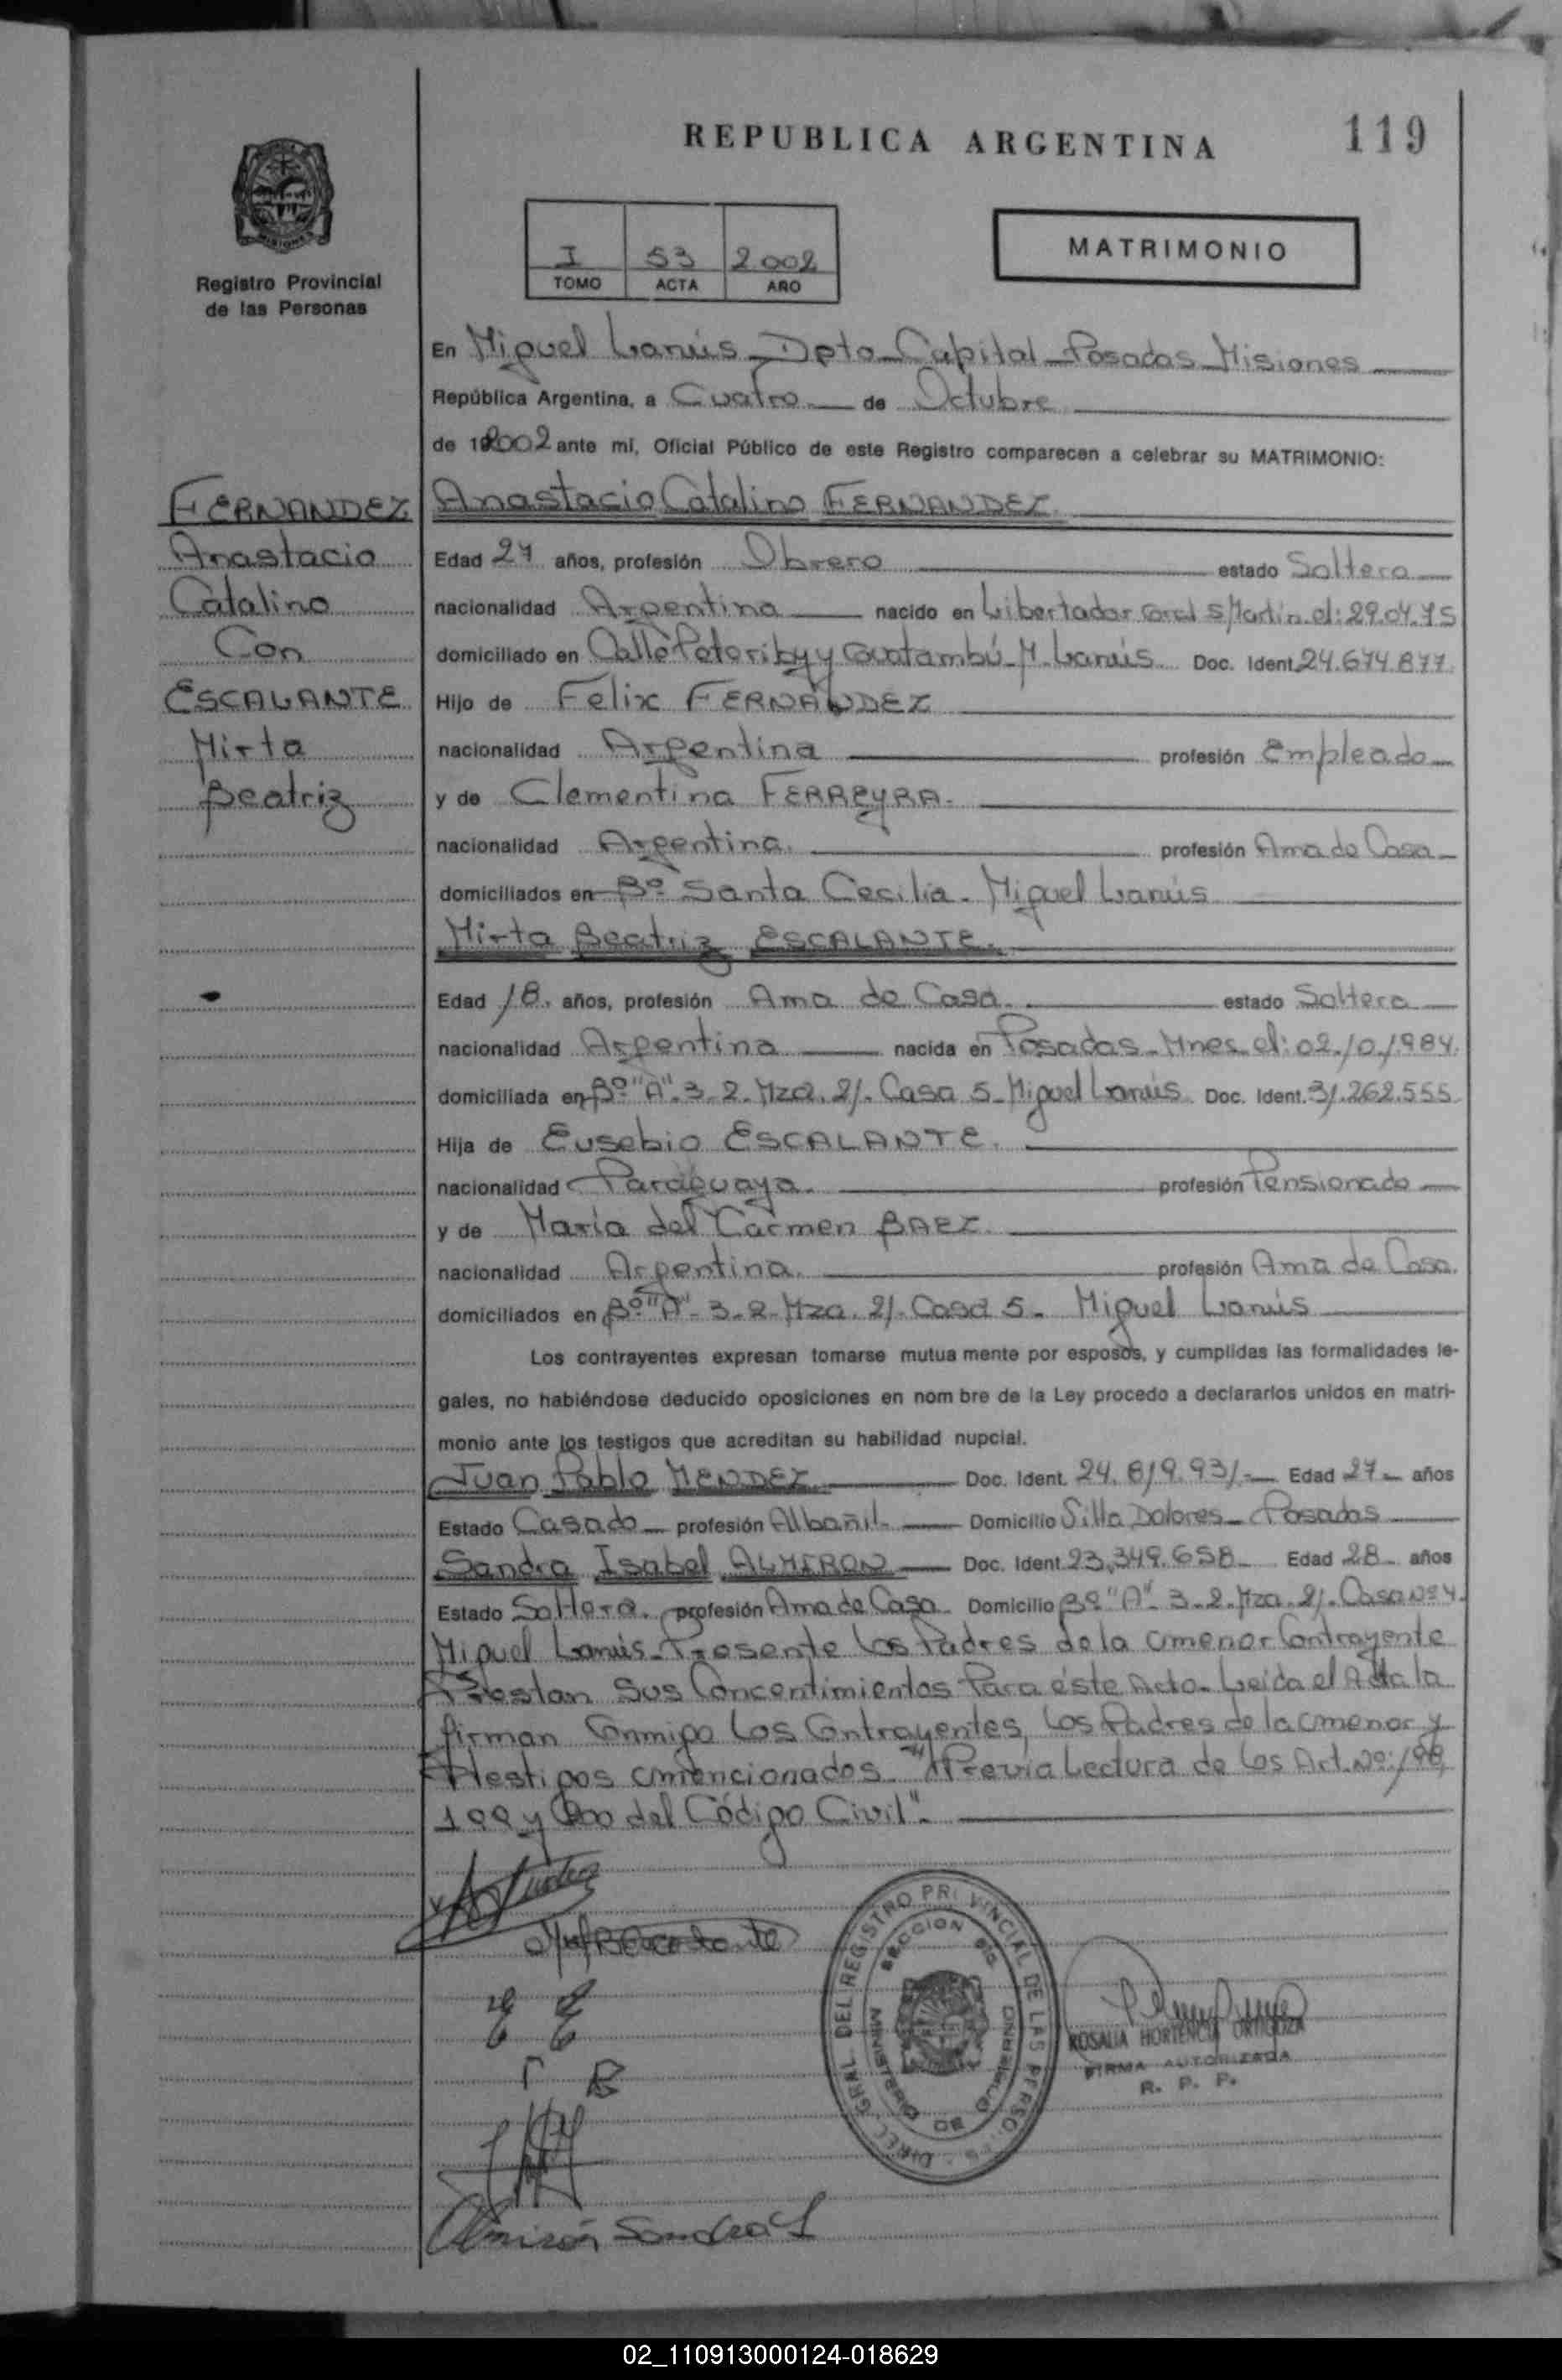 REPUBLICA ARGENTINA
119
MISIONES
Registro Provincial
de las Personas
I 53 2.002
TOMO ACTA AÑO
MATRIMONIO
En Miguel Lanús - Dpto - Capital - Posadas - Misiones
República Argentina, a Cuatro de Octubre
de 2002 ante mí, Oficial Público de este Registro comparecen a celebrar su MATRIMONIO:
FERNANDEZ
Anastacio
Catalino
Con
ESCALANTE
Mirta
Beatriz
Anastacio Catalino FERNANDEZ
Edad 27 años, profesión Obrero estado Soltero
nacionalidad Argentina nacido en Libertador Gral S/Martín el: 29.04.75
domiciliado en Calle Peteriby y Guatambú - M. Lanús Doc. Ident. 24.674.877
Hijo de Felix FERNÁNDEZ
nacionalidad Argentina profesión Empleado
y de Clementina FERREYRA.
nacionalidad Argentina. profesión Ama de Casa
domiciliados en Bº Santa Cecilia - Miguel Lanús
Mirta Beatriz ESCALANTE.
Edad 18. años, profesión Ama de Casa. estado Soltera
nacionalidad Argentina nacida en Posadas - Mnes el: 02.10.1984.
domiciliada en Bº "A". 3-2. Mza. 21. Casa 5 - Miguel Lanús Doc. Ident. 31.262.555
Hija de Eusebio ESCALANTE.
nacionalidad Paraguaya. profesión Pensionado
y de María del Carmen BAEZ.
nacionalidad Argentina. profesión Ama de Casa.
domiciliados en Bº "A" - 3-2 - Mza. 21 - Casa 5 - Miguel Lanús
Los contrayentes expresan tomarse mutua mente por esposos, y cumplidas las formalidades le-
gales, no habiéndose deducido oposiciones en nom bre de la Ley procedo a declararlos unidos en matri-
monio ante los testigos que acreditan su habilidad nupcial.
Juan Pablo MENDEZ Doc. Ident. 24.819.931.- Edad 27 años
Estado Casado profesión Albañil Domicilio Silla Dolores - Posadas
Sandra Isabel ALMIRON Doc. Ident. 23.349.658 Edad 28 años
Estado Soltera. profesión Ama de Casa Domicilio Bº "A" - 3-2. Mza. 21. Casa Nº 4.
Miguel Lanús - Presente los Padres de la menor Contrayente
Prestan Sus Concentimientos Para éste Acto - Leída el Acta la
firman Conmigo Los Contrayentes, los Padres de la menor y
Testigos mencionados. "Previa Lectura de los Art. Nº: 198,
199 y 200 del Código Civil".
DIREC. GRAL. DEL REGISTRO PROVINCIAL DE LAS PERSONAS
MINISTERIO DE GOBIERNO
ROSALIA HORTENCIA ORTIGOZA
FIRMA AUTORIZADA
R. P. P.
Almirón Sandra I
02_110913000124-018629